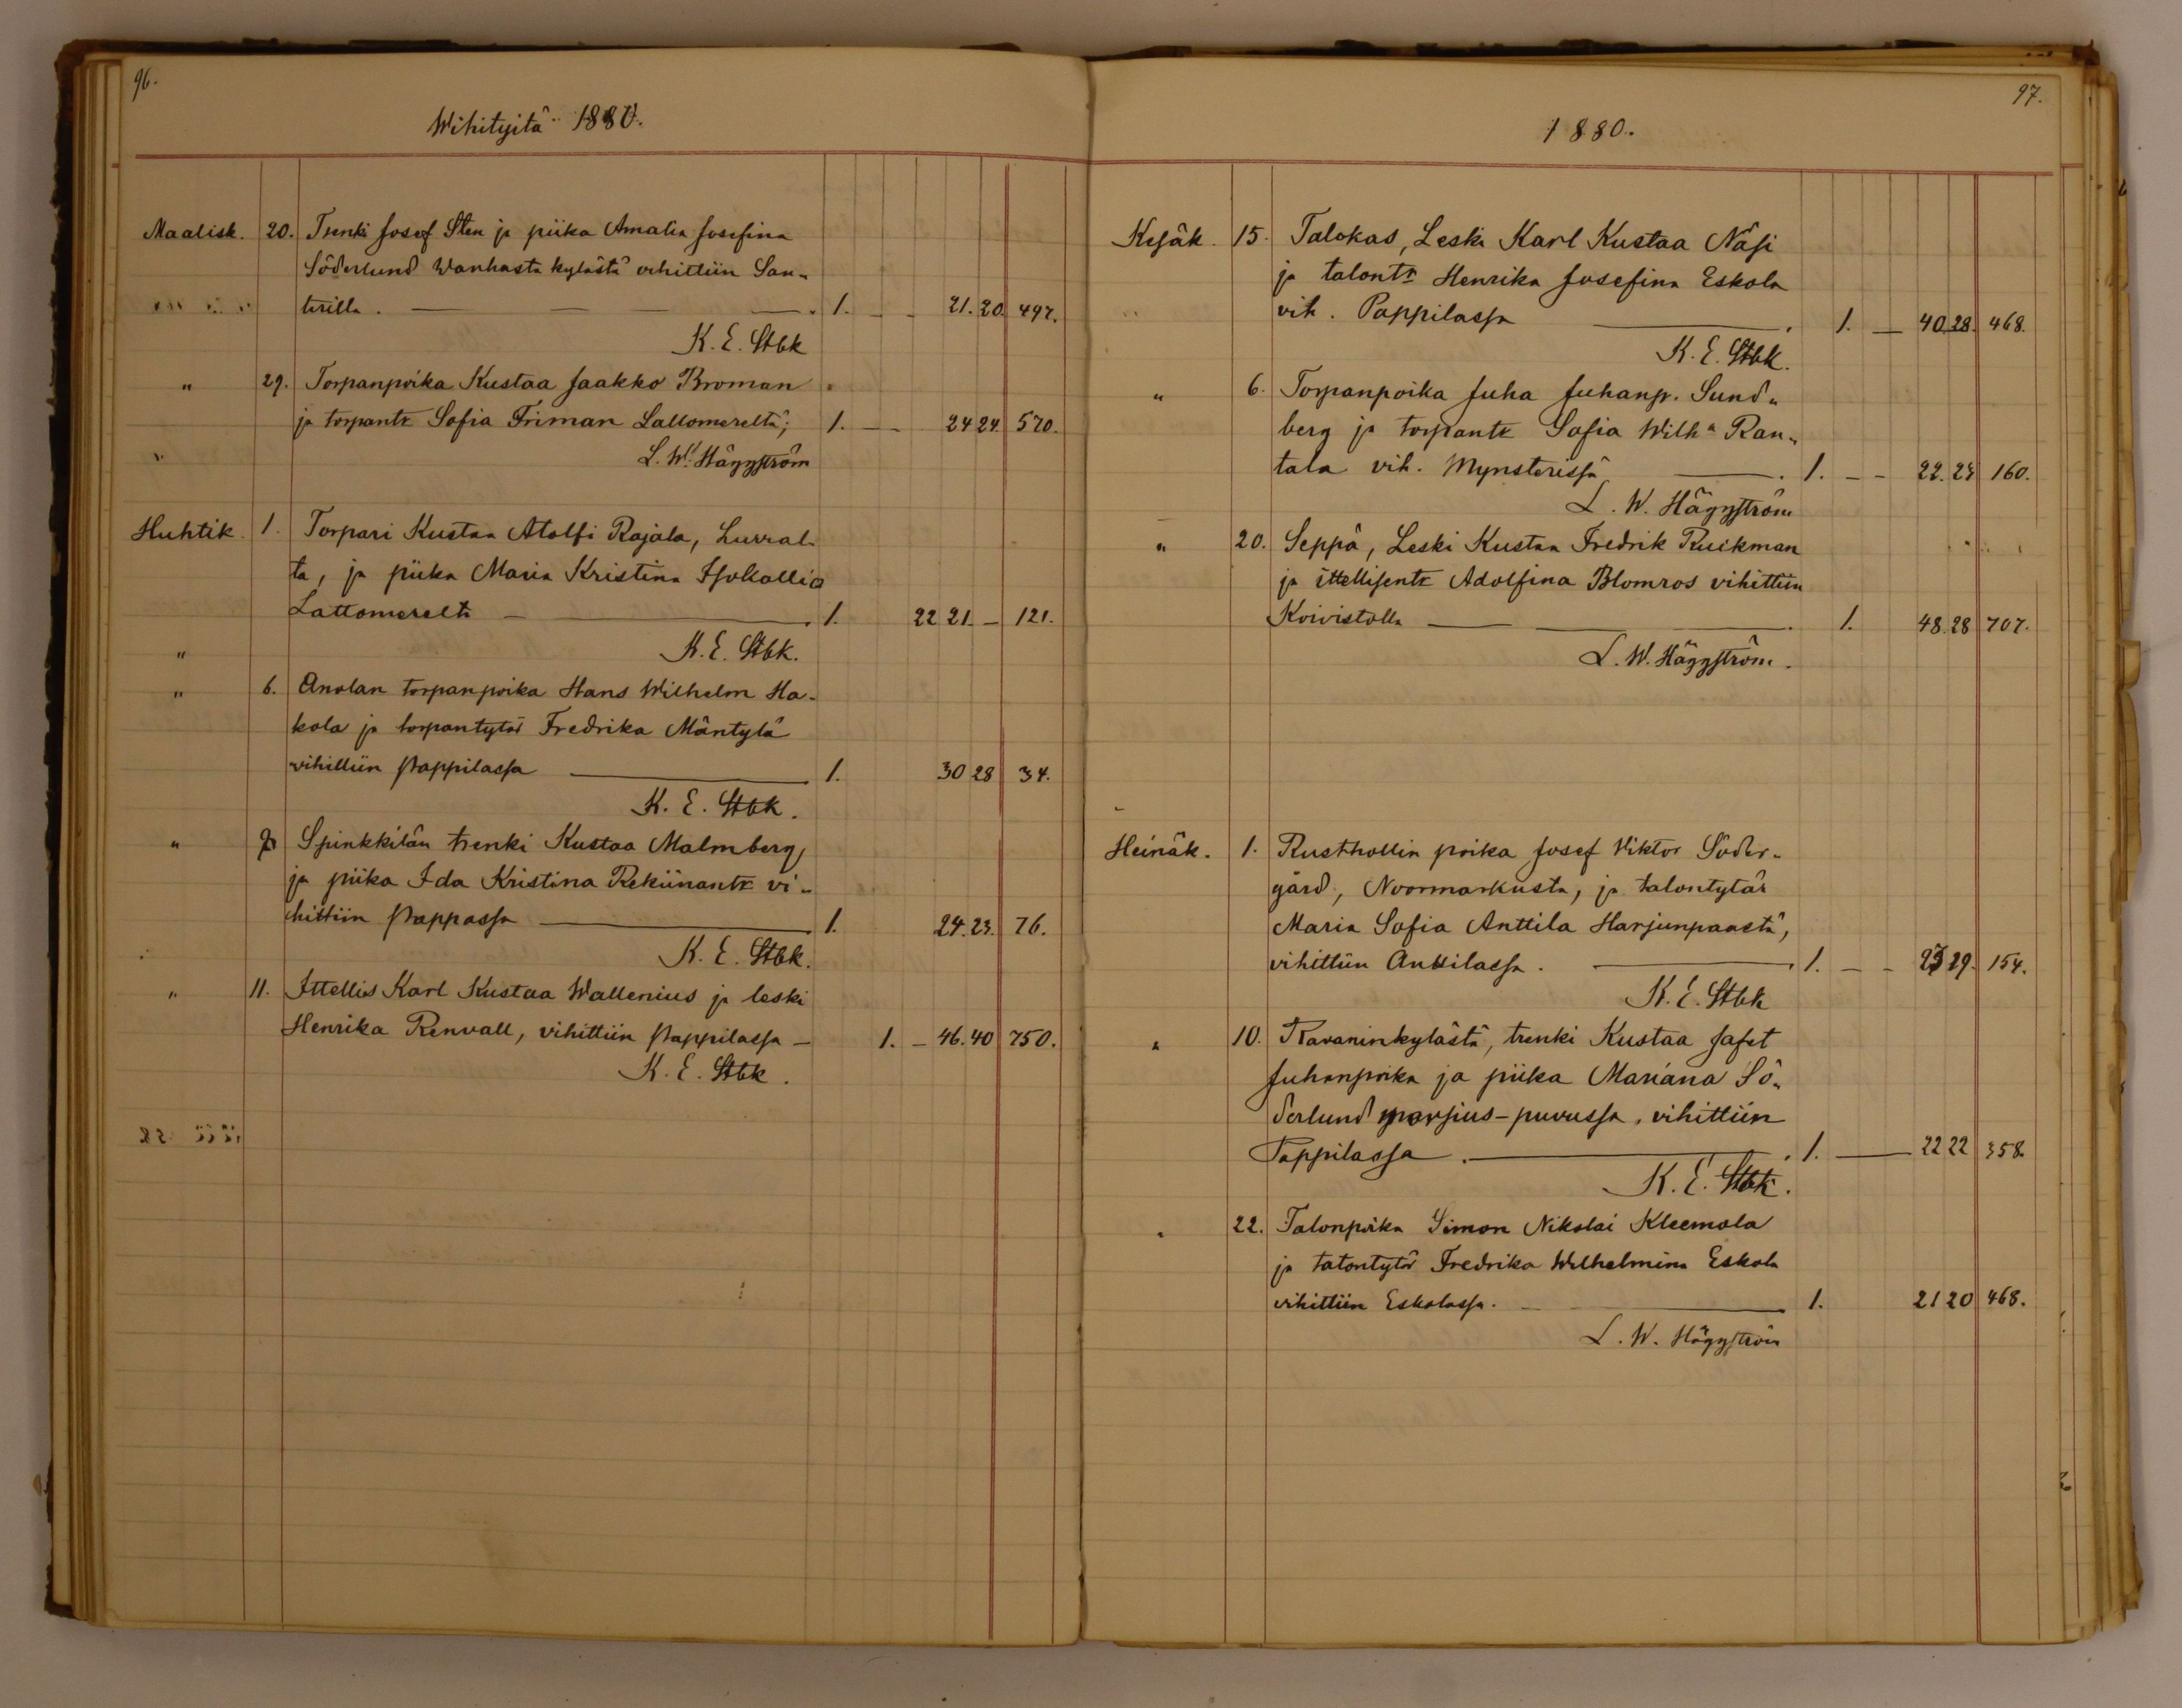 96.
Wihityitä 1880.
Maalisk. 20. Trenki Josef Sten ja piika Amalia Josefina
Söderlund Wanhasta kylästä vihittiin San-
terilla. — 1. — — 21. 20. 497.
K. E. Stbk
" 29. Torpanpoika Kustaa Jaakko Broman
ja torpantr Sofia Friman Lattomerelta; 1. — 24 24. 570.
L. W. Häggström
Huhtik. 1. Torpari Kustaa Atolfi Rajala,
ta, ja piika Maria Kristina Isokallio
Lattomerelta — 1. 22 21. — 121.
" K. E. Stbk.
" 6. Anolan torpanpoika Hans Wilhelm Ha-
kola ja torpantytär Fredrika Mäntylä
vihittiin pappilassa — 1. 30 28 34.
K. E. Stbk.
" Spinkkilän trenki Kustaa Malmberg,
ja piika Ida Kristina vi-
hittiin pappassa — 1. 24. 23. 76.
K. E. Stbk.
" 11. Ittellis Karl Kustaa Wallenius ja leski
Henrika Renvall, vihittiin pappilassa — 1. — 46. 40 750.
K. E. Stbk.
97.
1880.
Kesäk. 15. Talokas, Leski Karl Kustaa Näsi
ja talontr Henrika Josefina Eskola
vih. Pappilassa — 1. — 40 28. 468.
K. E. Stbk.
" 6. Torpanpoika Juha Juhanp. Sund-
berg ja torpantr Sofia Wilha Ran-
tala vih. Mynsterissä — 1. — — 22. 24 160.
L. W. Häggström
" 20. Seppä, Leski Kustaa Fredrik Ruikman
ja ittellisentr Adolfina Blomros vihittiin
Koivistolla — 1. 48. 28 707.
L. W. Häggström.
Heinäk. 1. Rusthollin poika Josef Viktor Söder-
gård, Noormarkusta, ja talontytär
Maria Sofia Anttila Harjunpäästä,
vihittiin Anttilassa. — 1. — — 23 29. 154.
K. E. Stbk
" 10. Ravaninkylästä, trenki Kustaa Jafet
Juhanpoika ja piika Mariana Sö-
derlund morsius-puvussa, vihittiin
Pappilassa. — 1. — 22 22 358.
K. E. Stbk.
" 22. Talonpoika Simon Nikolai Kleemola
ja talontytär Fredrika Wilhelmina Eskola
vihittiin Eskolassa. — 1. 21 20 468.
L. W. Häggström